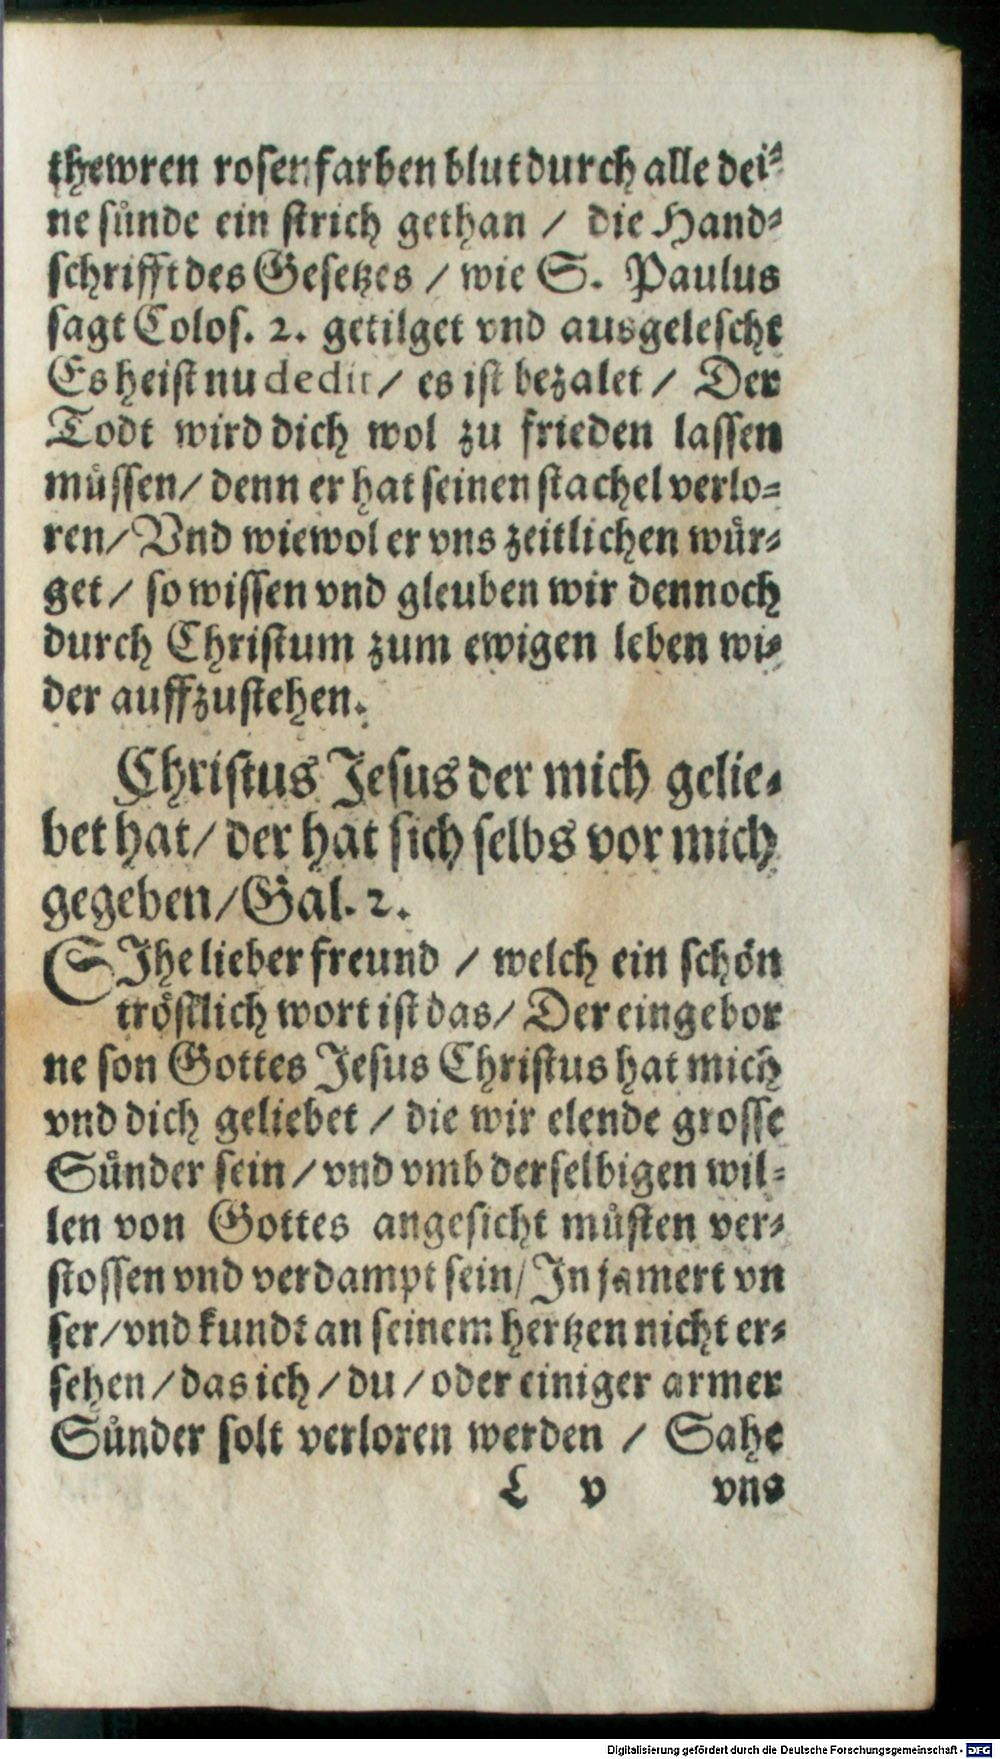 thewren rosenfarben blut durch alle dei-
ne sünde ein strich gethan / die Hand-
schrifft des Gesetzes / wie S. Paulus
sagt Colos. 2. getilget vnd ausgelescht
Es heist nu dedit / es ist bezalet / Der
Todt wird dich wol zu frieden lassen
müssen / denn er hat seinen stachel verlo-
ren / Vnd wiewol er vns zeitlichen wür-
get / so wissen vnd gleuben wir dennoch
durch Christum zum ewigen leben wi-
der auffzustehen.
Christus Jesus der mich gelie-
bet hat / der hat sich selbs vor mich
gegeben / Gal. 2.
SIhe lieber freund / welch ein schön
tröstlich wort ist das / Der eingebor
ne son Gottes Jesus Christus hat mich
vnd dich geliebet / die wir elende grosse
Sünder sein / vnd vmb derselbigen wil-
len von Gottes angesicht müsten ver-
stossen vnd verdampt sein / In jamert vn
ser / vnd kundt an seinem hertzen nicht er-
sehen / das ich / du / oder einiger armer
Sünder solt verloren werden / Sahe
L v vns
Digitalisierung gefördert durch die Deutsche Forschungsgemeinschaft - DFG